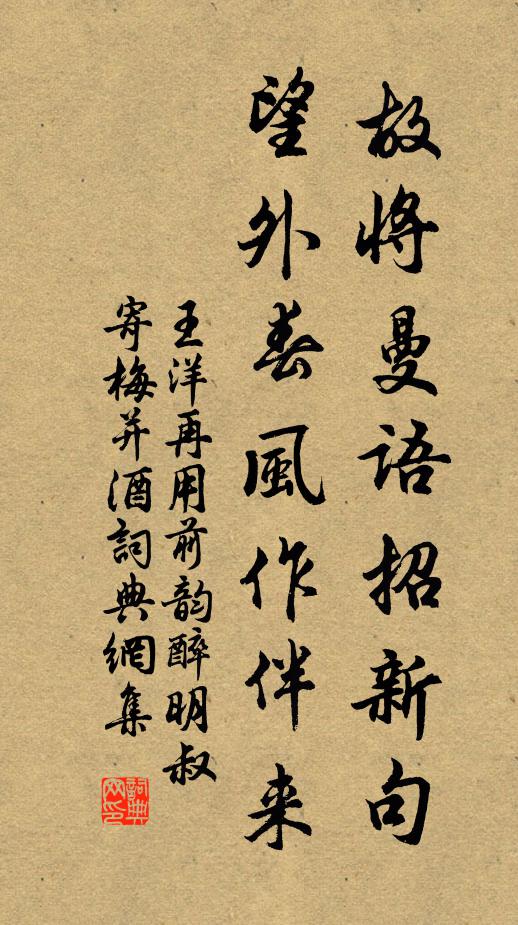 故将曼语招新句
望外春風作伴来
王洋再用前韵醉明叔
寄梅并酒詞典網集
詞典
网印